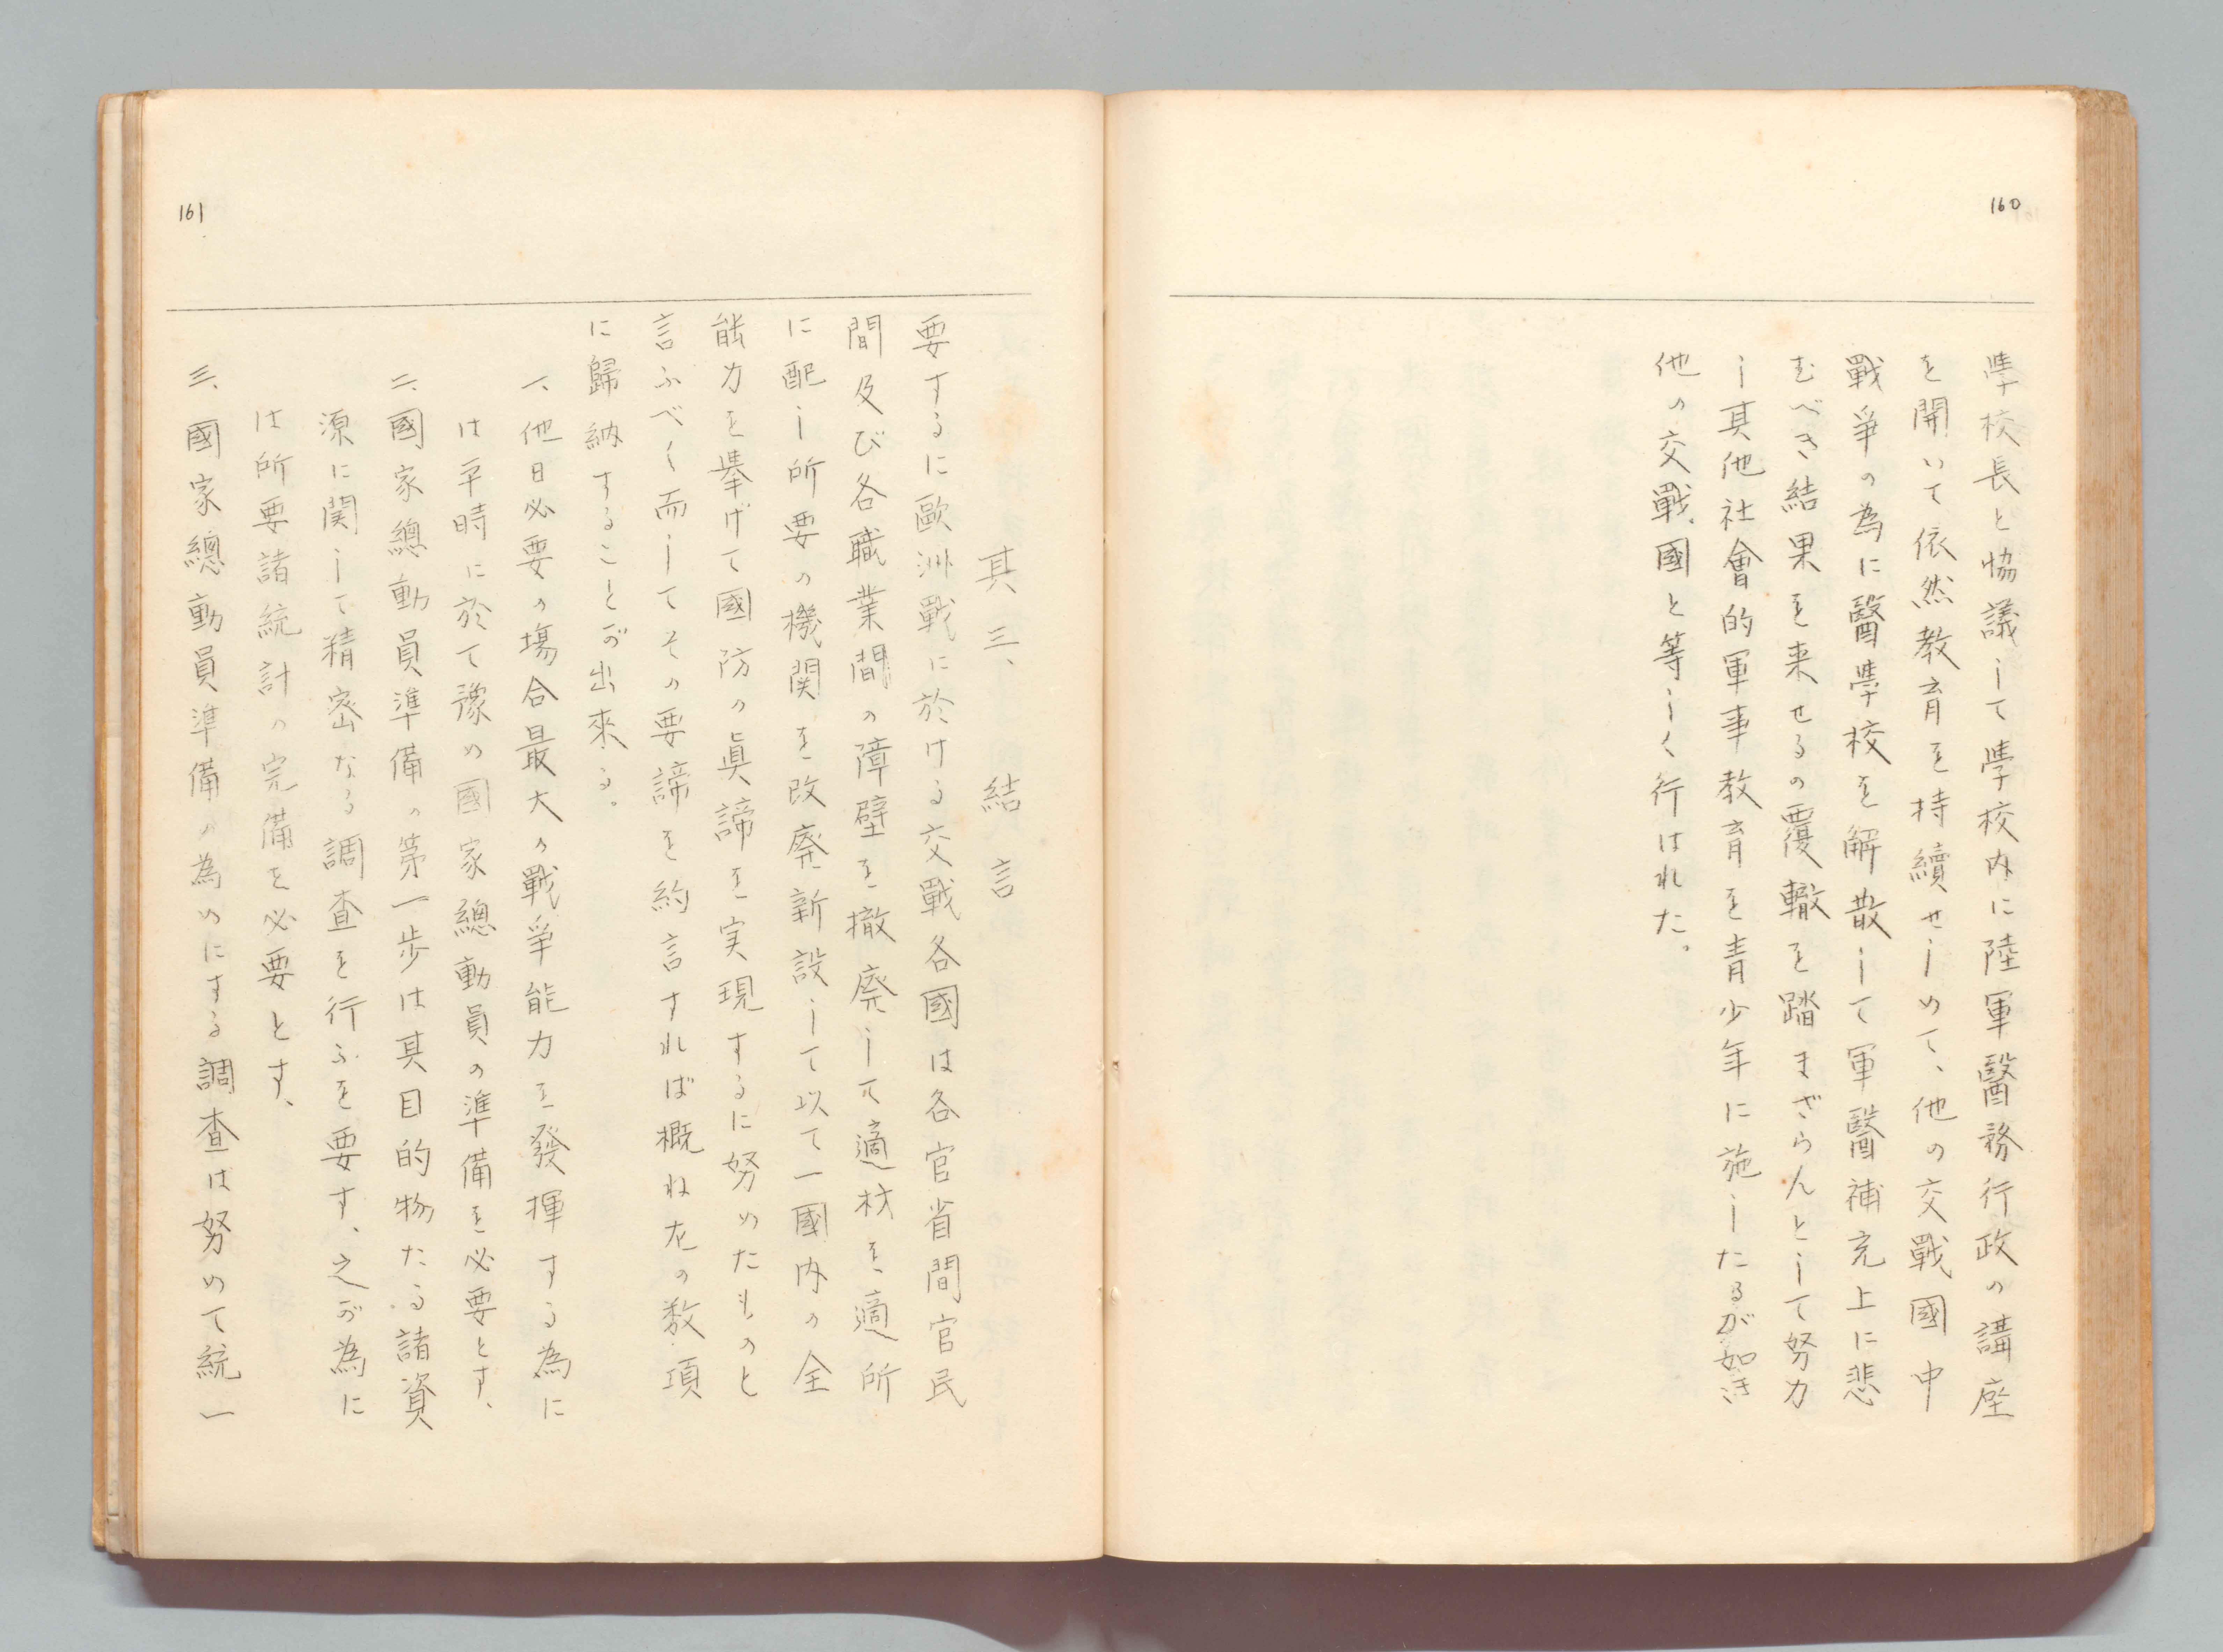 160
學校長と協議して學校内に陸軍醫務行政の講座
を開いて依然教育を持續せしめて、他の交戰國中
戰爭の為に醫學校を解散して軍醫補充上に悲
むべき結果を来せるの覆轍を踏まざらんとして努力
し其他社會的軍事教育を青少年に施したるが如き
他の交戰國と等しく行はれた。
161
其三、結言
要するに歐洲戰に於ける交戰各國は各官省間官民
間及び各職業間の障壁を撤廃して適材を適所
に配し所要の機関を改廃新設して以て一國内の全
能力を擧げて國防の眞諦を実現するに努めたものと
言ふべく而してその要諦を約言すれば概ね左の数項
に歸納することが出來る。
一、他日必要の場合最大の戰爭能力を發揮する為に
は平時に於て豫め國家總動員の準備を必要とす、
二、國家總動員準備の第一歩は其目的物たる諸資
源に関して精密なる調査を行ふを要す、之が為に
は所要諸統計の完備を必要とす、
三、國家總動員準備の為めにする調査は努めて統一